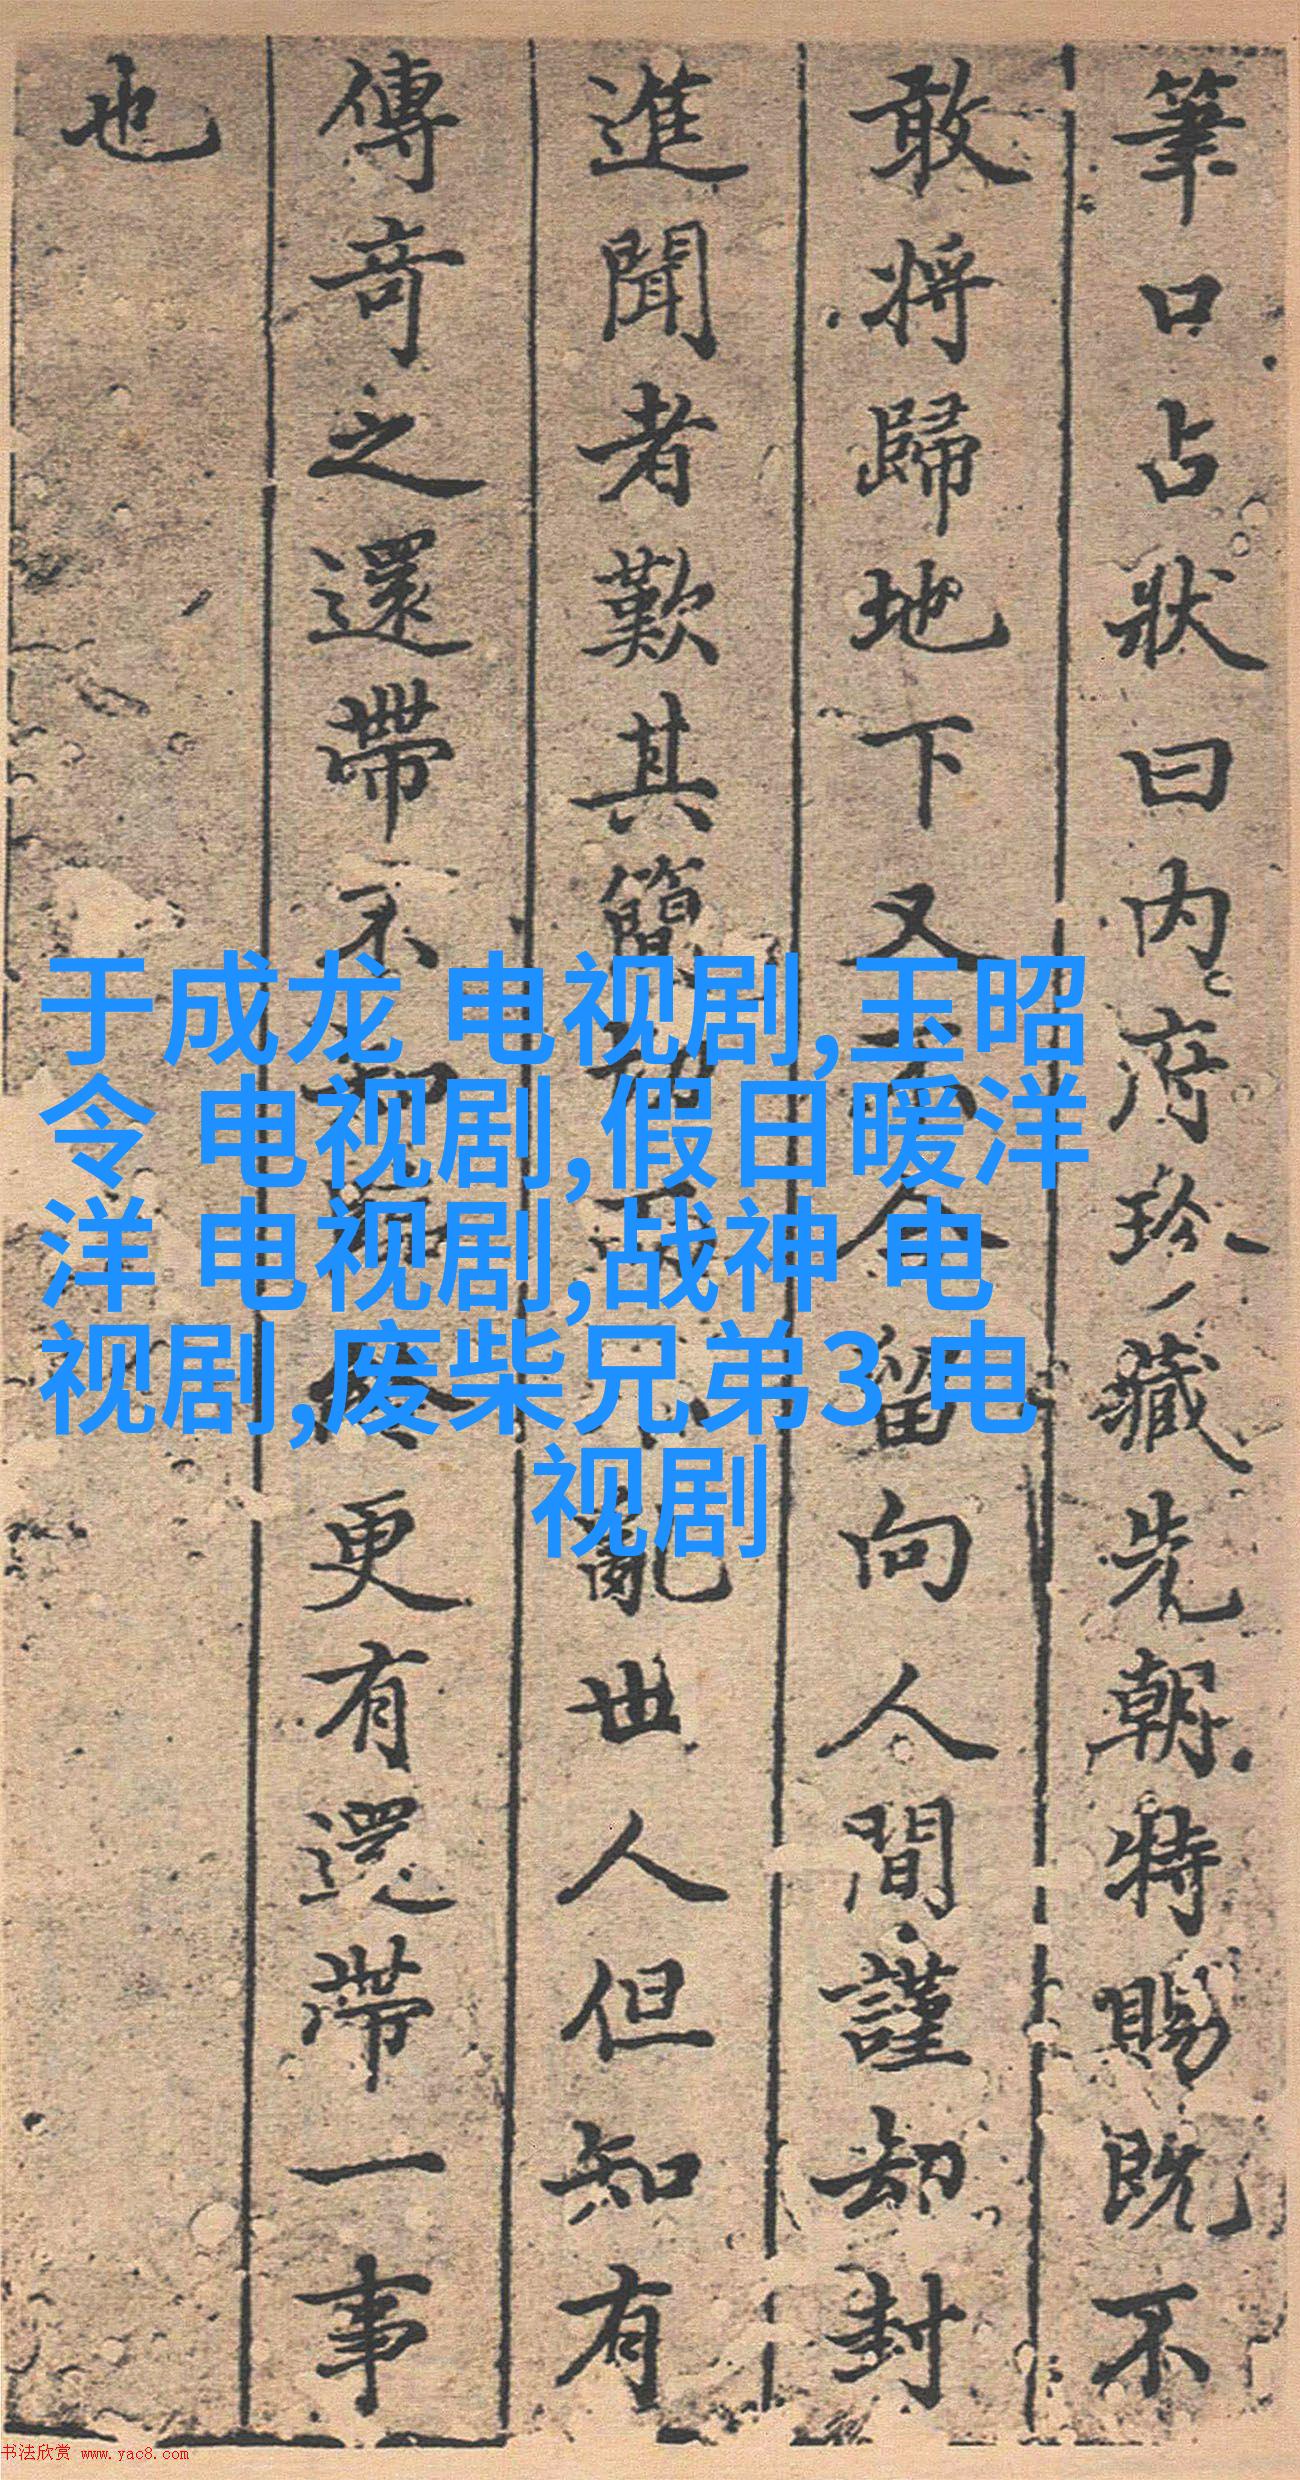 筆口占狀曰内府珍藏先朝特賜既不
敢將歸地下又不合留向人間謹却封
進聞者歎其簡而不亂世人但知有
傳奇之還帶不知更有還帶一事
也
于成龙 电视剧,玉昭
令 电视剧,假日暖洋
洋 电视剧,战神 电
视剧,废柴兄弟3 电
视剧
书法欣赏 www.yac8.com